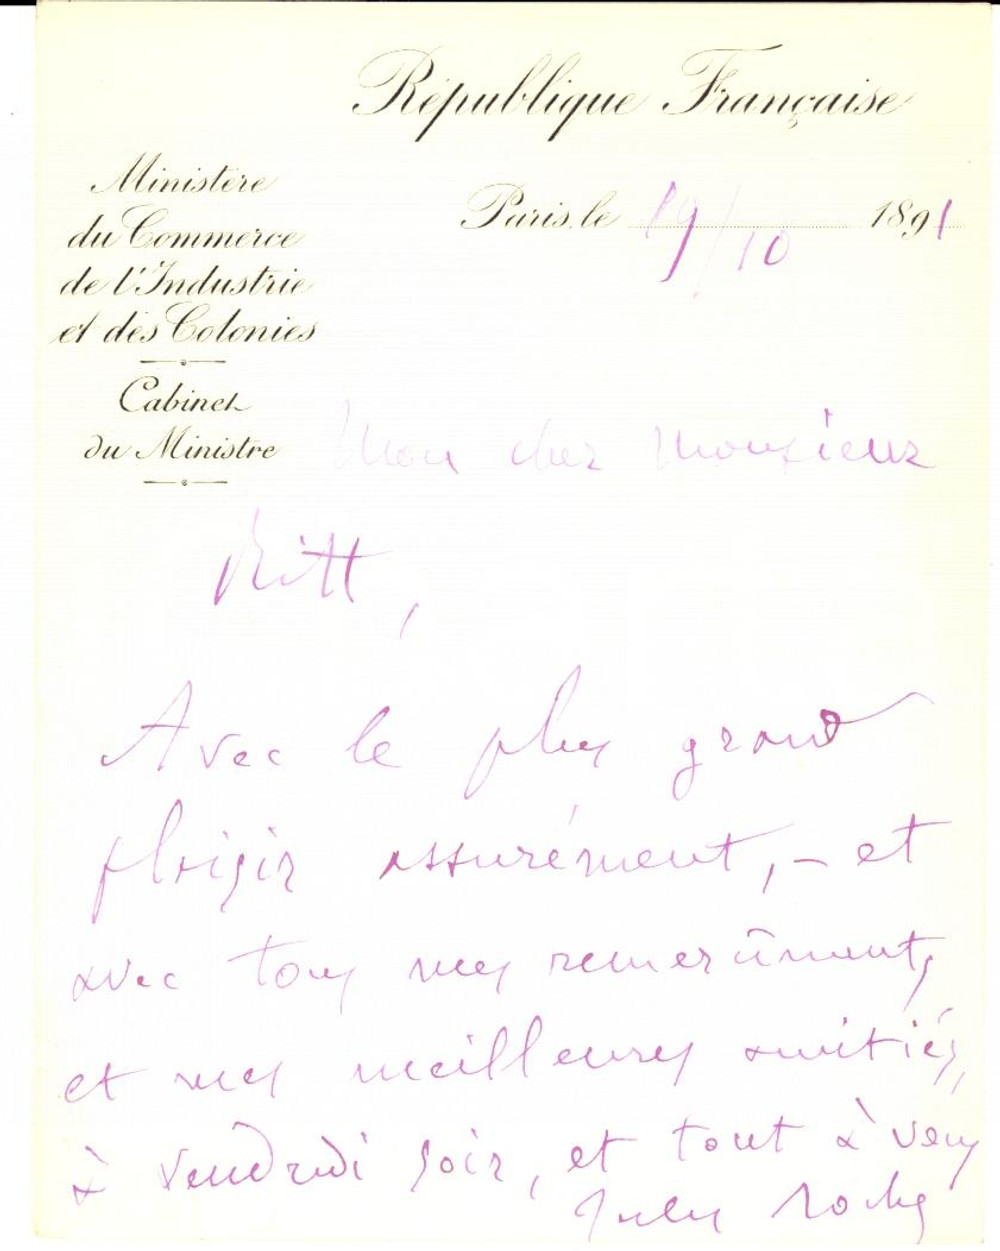 République Française
Ministère
du Commerce
de l'Industrie
et des Colonies
Cabinet
du Ministre
Paris, le 19/10 1891
Mon cher Monsieur
Ritt,
Avec le plus grand
plaisir assurément, – et
avec tous mes remercîments,
et mes meilleures amitiés,
à vendredi soir, et tout à vous
Jules Roche